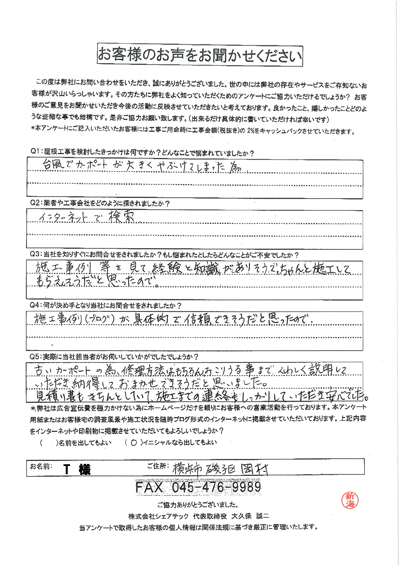 お客様のお声をお聞かせください
この度は弊社にお問い合わせをいただき、誠にありがとうございました。世の中には弊社の存在やサービスをご存知ないお
客様が沢山いらっしゃいます。その方たちに弊社をよく知っていただくためのアンケートにご協力いただけるでしょうか？ お客
様のご意見をお聞かせいただき今後の活動に反映させていただきたいと考えております。良かったこと、嬉しかったことどのよ
うな些細な事でも結構です。是非ご協力お願い致します。（出来るだけ具体的に書いていただければ幸いです）
*本アンケートにご記入いただいたお客様には工事ご用命時に工事金額(税抜き)の 2%をキャッシュバックさせていただきます。
Q1:屋根工事を検討したきっかけは何ですか？どんなことで悩まれていましたか？
台風でカーポートが大きくやぶけてしまった為
Q2:業者や工事会社をどのように探されましたか？
インターネットで検索
Q3:当社を知りすぐにお問合せをされましたか？もし悩まれたとしたらどんなことがご不安でしたか？
施工事例等を見て、経験と知識がありそうで、ちゃんと施工して
もらえそうだと思ったので。
Q4:何が決め手となり当社にお問合せをされましたか？
施工事例(ブログ)が具体的で信頼できそうだと思ったので.
Q5:実際に当社担当者がお伺いしていかがでしたでしょうか？
古いカーポートの為、修理方法はもちろんおこりうる事までくわしく説明して
いただき納得しておまかせできそうだと思いました。
見積り書もきちんとしていて、施工までの連絡もしっかりしていただき安心でした。
*弊社は広告宣伝費を極力かけない為にホームページだけを頼りにお客様への営業活動を行っております。本アンケート
用紙またはお客様宅の調査風景や施工状況を随時ブログ形式でインターネットに掲載させていただいております。上記内容
をインターネットや印刷物に掲載させていただいてもよろしいでしょうか？
（　）名前を出してもよい　（○）イニシャルなら出してもよい
お名前: T 様　ご住所: 横浜市 磯子区 岡村
FAX 045-476-9989
ご協力ありがとうございました。
株式会社シェアテック 代表取締役 大久保 誠二
当アンケートで取得したお客様の個人情報は関係法規に基づき厳正に管理いたします。
新海